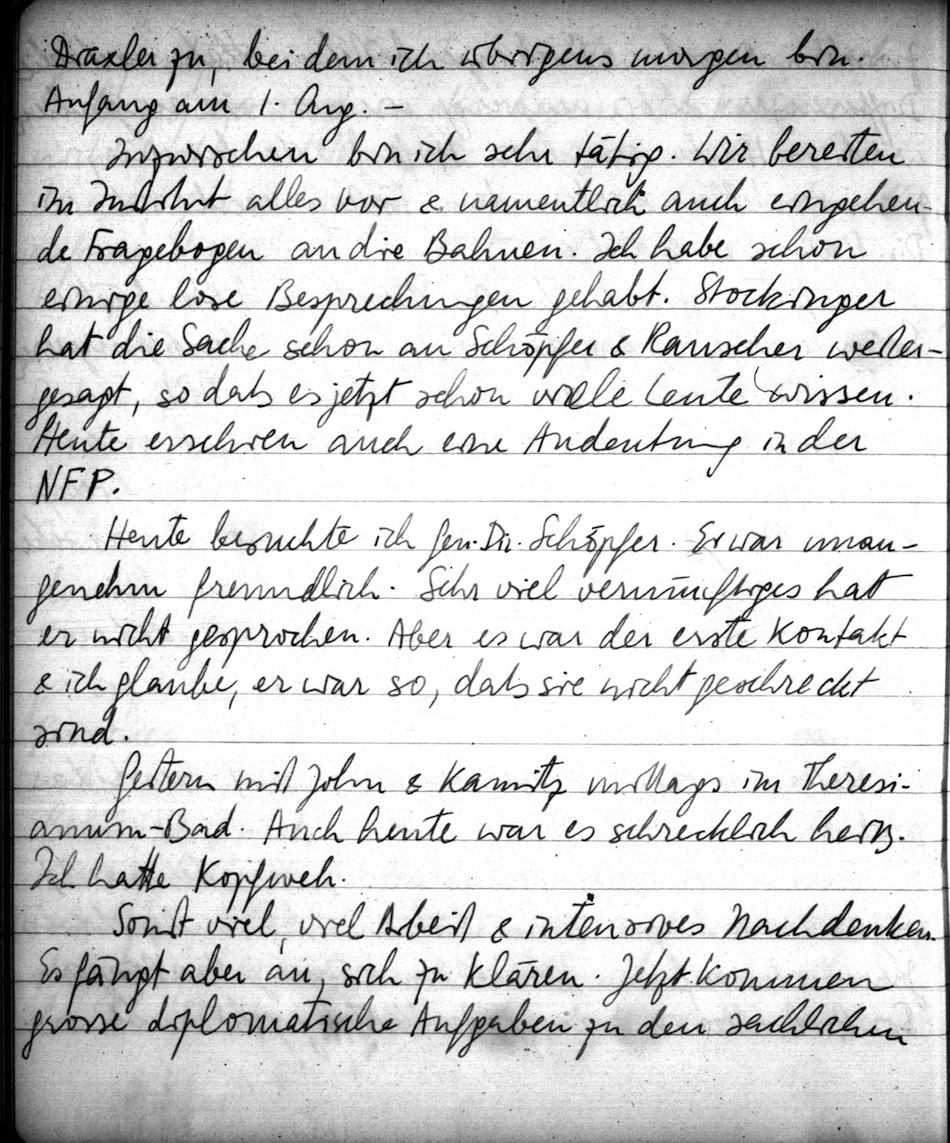 Draxler zu, bei dem ich übrigens morgen bin.
Anfang am 1. Aug. –
Inzwischen bin ich sehr tätig. Wir bereiten
im Institut alles vor & namentlich auch eingehen-
de Fragebogen an die Bahnen. Ich habe schon
einige lose Besprechungen gehabt. Stockinger
hat die Sache schon an Schöpfer & Rauscher weiter-
gesagt, so dass es jetzt schon viele Leute wissen.
Heute erschien auch eine Andeutung in der
NFP.
Heute besuchte ich Gen. Dir. Schöpfer. Er war unan-
genehm freundlich. Sehr viel vernünftiges hat
er nicht gesprochen. Aber es war der erste Kontakt
& ich glaube, er war so, dass sie nicht geschreckt
sind.
Gestern mit John & Kamitz mittags im Theresi-
anum-Bad. Auch heute war es schrecklich heiss.
Ich hatte Kopfweh.
Sonst viel, viel Arbeit & intensives Nachdenken.
Es fängt aber an, sich zu klären. Jetzt kommen
grosse diplomatische Aufgaben zu den sachlichen